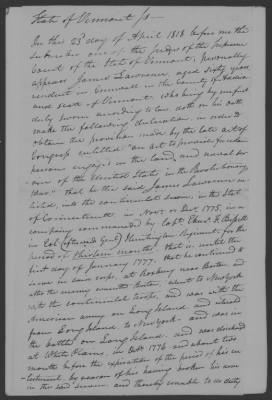 State of Vermont ss
On this 23d day of April 1818 before me the
subscriber one of the Judges of the Supreme
Court of the State of Vermont, personally
appears James Lawrence, aged sixty years
resident in Cornwall in the County of Addison
and State of Vermont, who being by me first
duly sworn according to law, doth on his oath
make the following declaration, in order to
obtain the provision made by the late act of
Congress entitled "an act to provide for certain
persons engaged in the land and naval ser-
vice of the United States in the Revolutionary
War": that he the said James Lawrence en-
listed, into the continental service, in the State
of Connecticut, in Novr or Decr 1775, in a
company commanded by Capt
in Col. (afterward Genl) Huntington Regiment for the
period of thirteen months, that is, until the
first day of January 1777. that he continued to
serve in said corps, at Roxbury near Boston and
after the enemy evacuated Boston, went to New York
with the continental troops, and was with the
American army on Long Island and retreated
from Long Island to New York and was in
the battle on Long Island, and was
at White Plains, in Octr 1776 and about two
months before the expiration of the period of his en-
listment, by reason of his having broken his arm
in the said service, and thereby unable to do duty